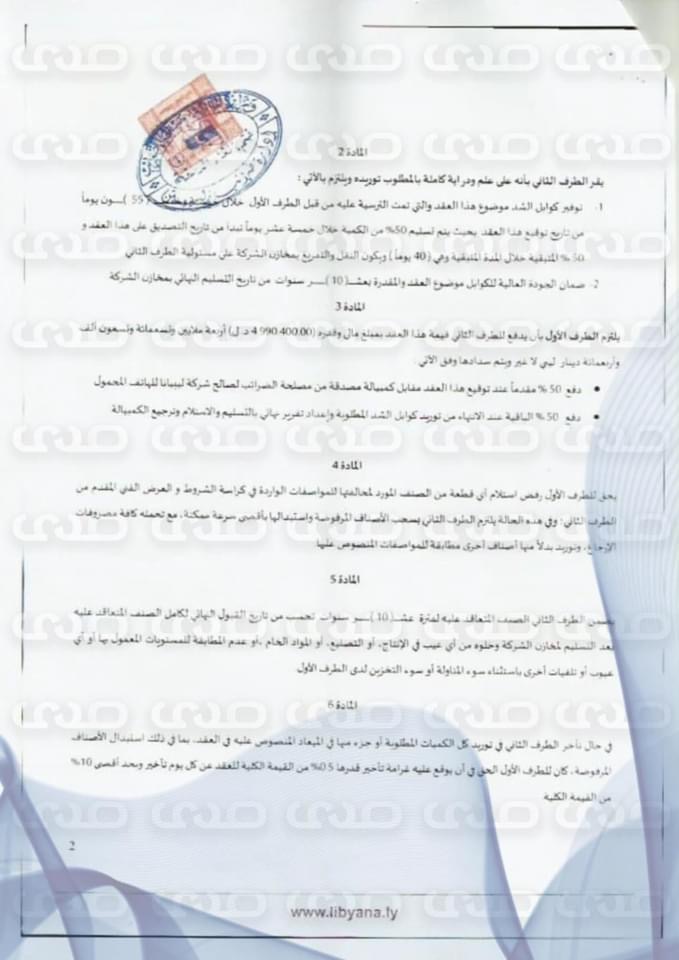 المادة 2
يقر الطرف الثاني بأنه على علم ودراية كاملة بالمطلوب توريده ويلتزم بالآتي :
1- توفير كوابل الشد موضوع هذا العقد والتي تمت الترسية عليه من قبل الطرف الأول خلال 55 ) ـــون يوماً
من تاريخ توقيع هذا العقد بحيث يتم تسليم 50% من الكمية خلال خمسة عشر يوماً تبدأ من تاريخ التصديق على هذا العقد و
50 % المتبقية خلال المدة المتبقية وهي ( 40 يوماً ) ويكون النقل والتفريغ بمخازن الشركة على مسئولية الطرف الثاني
2- ضمان الجودة العالية للكوابل موضوع العقد والمقدرة بعشـــ( 10 )ــــر سنوات من تاريخ التسليم النهائي بمخازن الشركة
المادة 3
يلتزم الطرف الأول بأن يدفع للطرف الثاني قيمة هذا العقد بمبلغ مالي وقدره (4.990.400.00 د.ل) أربعة ملايين وتسعمائة وتسعون ألف
وأربعمائة دينار ليبي لا غير ويتم سدادها وفق الآتي :
• دفع 50 % مقدماً عند توقيع هذا العقد مقابل كمبيالة مصدقة من مصلحة الضرائب لصالح شركة ليبيانا للهاتف المحمول
• دفع 50 % الباقية عند الانتهاء من توريد كوابل الشد المطلوبة وإعداد تقرير نهائي بالتسليم والاستلام وترجيع الكمبيالة
المادة 4
يحق للطرف الأول رفض استلام أي قطعة من الصنف المورد لمخالفتها للمواصفات الواردة في كراسة الشروط و العرض الفني المقدم من
الطرف الثاني؛ وفي هذه الحالة يلتزم الطرف الثاني بسحب الأصناف المرفوضة واستبدالها بأقصى سرعة ممكنة، مع تحمله كافة مصروفات
الإرجاع، وتوريد بدلاً منها أصناف أخرى مطابقة للمواصفات المنصوص عليها
المادة 5
يضمن الطرف الثاني الصنف المتعاقد عليه لفترة عشــ( 10 )ــــر سنوات تحسب من تاريخ القبول النهائي لكامل الصنف المتعاقد عليه
بعد التسليم لمخازن الشركة وخلوه من أي عيب في الإنتاج، أو التصنيع، أو المواد الخام ،أو عدم المطابقة للمستويات المعمول بها أو أي
عيوب أو تلفيات أخرى باستثناء سوء المناولة أو سوء التخزين لدى الطرف الأول.
المادة 6
في حال تأخر الطرف الثاني في توريد كل الكميات المطلوبة أو جزء منها في الميعاد المنصوص عليه في العقد، بما في ذلك استبدال الأصناف
المرفوضة، كان للطرف الأول الحق في أن يوقع عليه غرامة تأخير قدرها 0.5% من القيمة الكلية للعقد عن كل يوم تأخير وبحد أقصى 10%
من القيمة الكلية.
2
www.libyana.ly
صدى